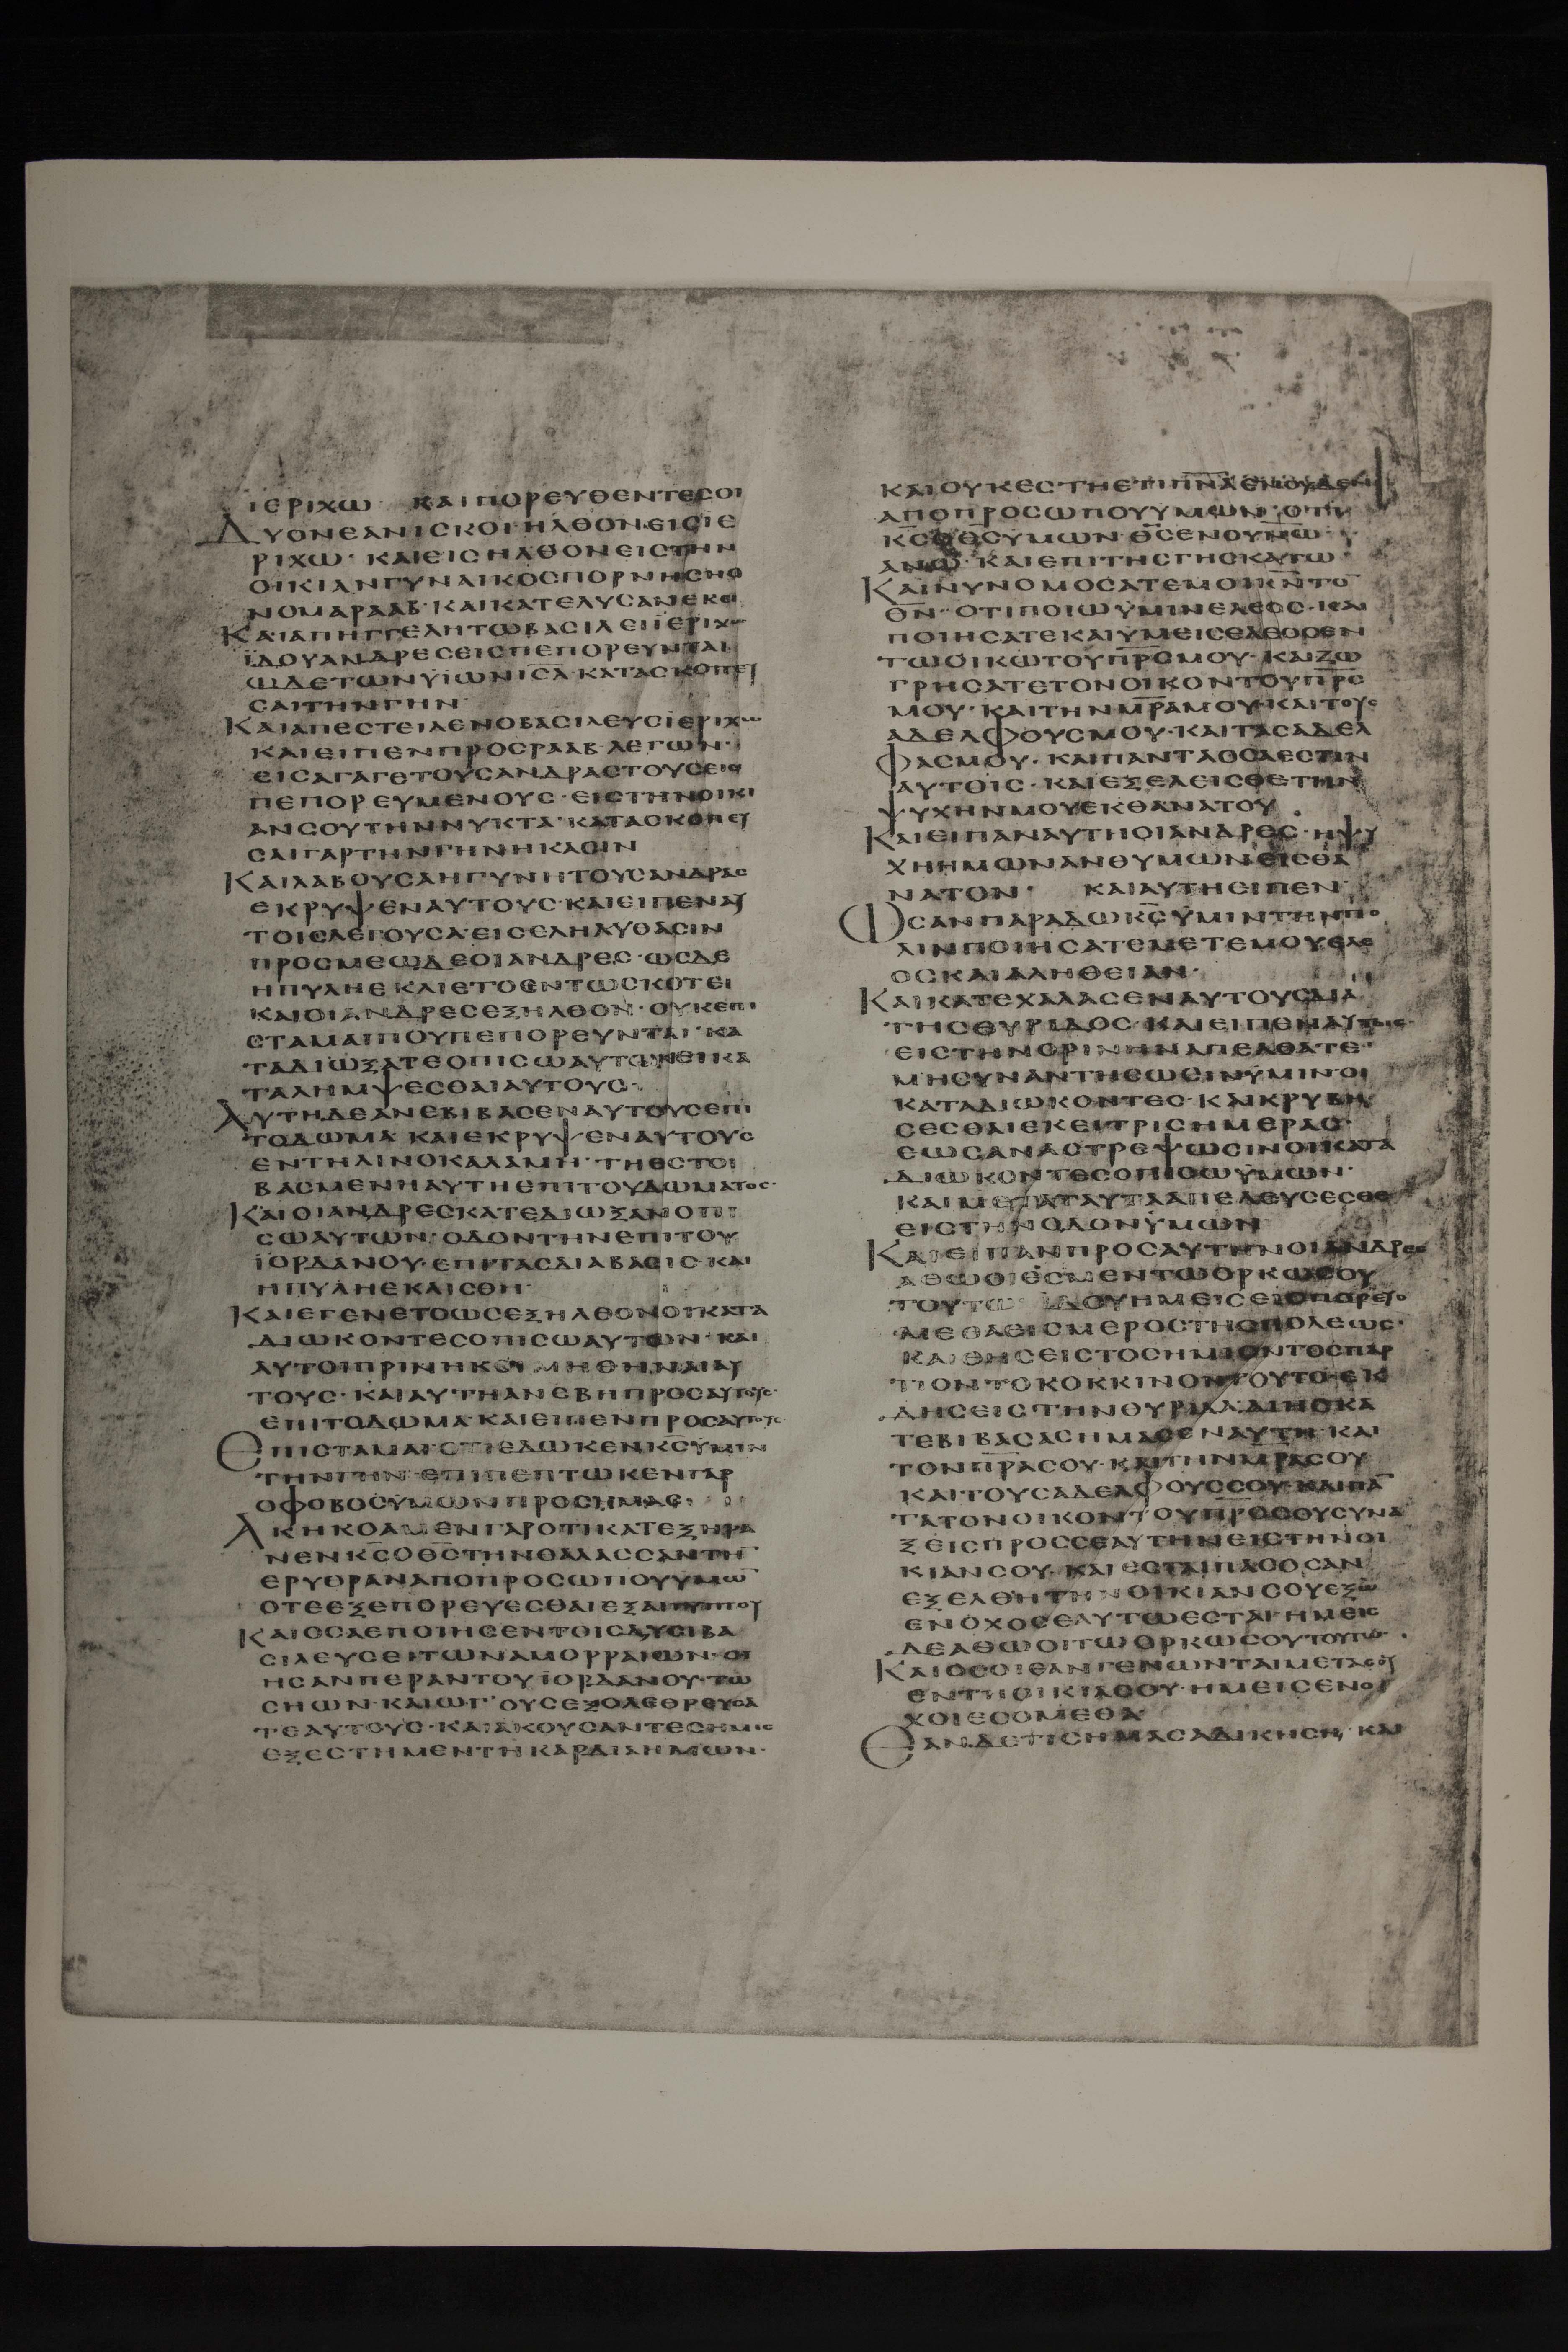 ϊεριχω και πορευθεντεσοι
Δυονεανισκοι ηλθονεισϊε
ριχω· καιεισηλθονειστην
οικιανγυναικοσπορνησησ
νομαρααβ· καικατελυσανεκει
Καιαπηγγεληταωβασιλειϊεριχω
ϊδουανδρεσεισπεπορευνται
ωδετωνυϊωνισ̅λ̅ κατασκοπευ
σαιτηνγην·
Καιαπεστειλενοβασιλευσϊεριχω
καιειπενπροσρααβ·λεγων·
εισαγαγετουσανδραστουσεισ
πεπορευμενουσ·ειστηνοικι
ανσουτηννυκτα·κατασκοπευ
σαιγαρτηνγηνηκασιν
Καιλαβουσαηγυνητουσανδρασ
εκρυψεναυτουσ·καιειπεναυ
τοισλεγουσα·εισεληλυθασιν
προσμεωδεοιανδρεσ·ωσδε
ηπυληεκλιετοεντωσκοτει
καιοιανδρεσεξηλθον·ουκεπι
σταμαιπουπεπορευνται·κα
ταδιωξατεοπισωαυτωνεικα
ταλημψεσθαιαυτουσ·
Αυτηδεανεβιβασεναυτουσεπι
τοδωμα καιεκρυψεναυτουσ
εντηλινοκαλαμη·τηεστοι
βασμενηαυτηεπιτουδωματοσ·
Καιοιανδρεσκατεδιωξανοπι
σωαυτων·οδοντηνεπιτου
ϊορδανου·επιτασδιαβασισ·και
ηπυληεκλισθη·
Καιεγενετοωσεξηλθονοικατα
διωκοντεσοπισωαυτων·και
αυτοιπρινηκοιμηθηναιαυ
τουσ·καιαυτηανεβηπροσαυτουσ·
επιτοδωμα·καιειπενπροσαυτουσ
Επισταμαιοτιεδωκενκ̅σ̅υμιν
τηνγην·επιπεπτωκενγαρ
οφοβοσυμωνπροσημασ·
Ακηκοαμενγαροτικατεξηρα
νενκ̅σ̅οθ̅σ̅τηνθαλασσαντη̅
ερυθραναποπροσωπουυμω̅
οτεεξεπορευεσθαιεξαιγυπτου
Καιοσαεποιησεντοισδυσιβα
σιλευσειτωναμορραιων·οι
ησανπεραντουϊορδανου·τω
σηων·καιωγ· ουσεξολεθρευσα
τεαυτουσ·καιακουσαντεσημισ
εξεστημεντηκαρδιαημων·
καιουκεστηετιπ̅ν̅α̅ενουδενι
αποπροσωπουυμων·οτι
κ̅σ̅οθ̅σ̅υμων·θ̅σ̅ενουνω
ανω·καιεπιτησγησκατω·
Καινυνομοσατεμοικ̅ν̅το̅
θ̅ν̅·οτιποιωϋμινελεοσ·και
ποιησατεκαιϋμεισελεοσεν
τωοικωτουπ̅ρ̅σ̅μου·καιζω
γρησατετονοικοντουπ̅ρ̅σ̅
μου·καιτηνμ̅ρ̅α̅μου·καιτουσ
αδελφουσμου·καιτασαδελ
φασμου·καιπανταοσαεστιν
αυτοισ·καιεξελεισθετην
ψυχηνμουεκθανατου·
Καιειπαναυτηοιανδρεσ·ηψυ
χηημωνανθυμωνεισθα
νατον· καιαυτηειπεν
Ωσανπαραδωκ̅σ̅ϋμιντηνπο
λινποιησατεμετεμουελε
οσκαιαληθειαν·
Καικατεχαλασεναυτουσδια
τησθυριδοσ·καιειπεναυτοισ·
ειστηνορινηναπελθατε·
μησυναντησωσινϋμινοι
καταδιωκοντεσ·καικρυβη
σεσθαιεκειτρισημερασ·
εωσαναστρεψωσινοικατα
διωκοντεσοπισωϋμων·
καιμεταταυτααπελευσεσθε
ειστηνοδονϋμων
Καιειπανπροσαυτηνοιανδρεσ
αθωοιεσμεντωορκωσου
τουτω ϊδουημεισεισπορευο
μεθαεισμεροστησπολεωσ·
καιθησειστοσημιοντοσπαρ
τιοντοκοκκινοντουτο·εκ
δησεισειστηνθυριδαδιησκα
τεβιβασασημασεναυτη·και
τονπ̅ρ̅α̅σου·καιτηνμ̅ρ̅α̅σου
καιτουσαδελφουσσου·καιπα̅
τατονοικοντουπ̅ρ̅σ̅σουσυνα
ξεισπροσσεαυτηνειστηνοι
κιανσου·καιεσταιπασοσαν
εξελθητηνοικιανσουεξω
ενοχοσεαυτωεσται·ημεισ
δεαθωοιτωορκωσουτουτω·
Καιοσοιεανγενωνταιμετασου
εντηοικιασου·ημεισενο
χοιεσομεθα
Εανδετισημασαδικηση, και